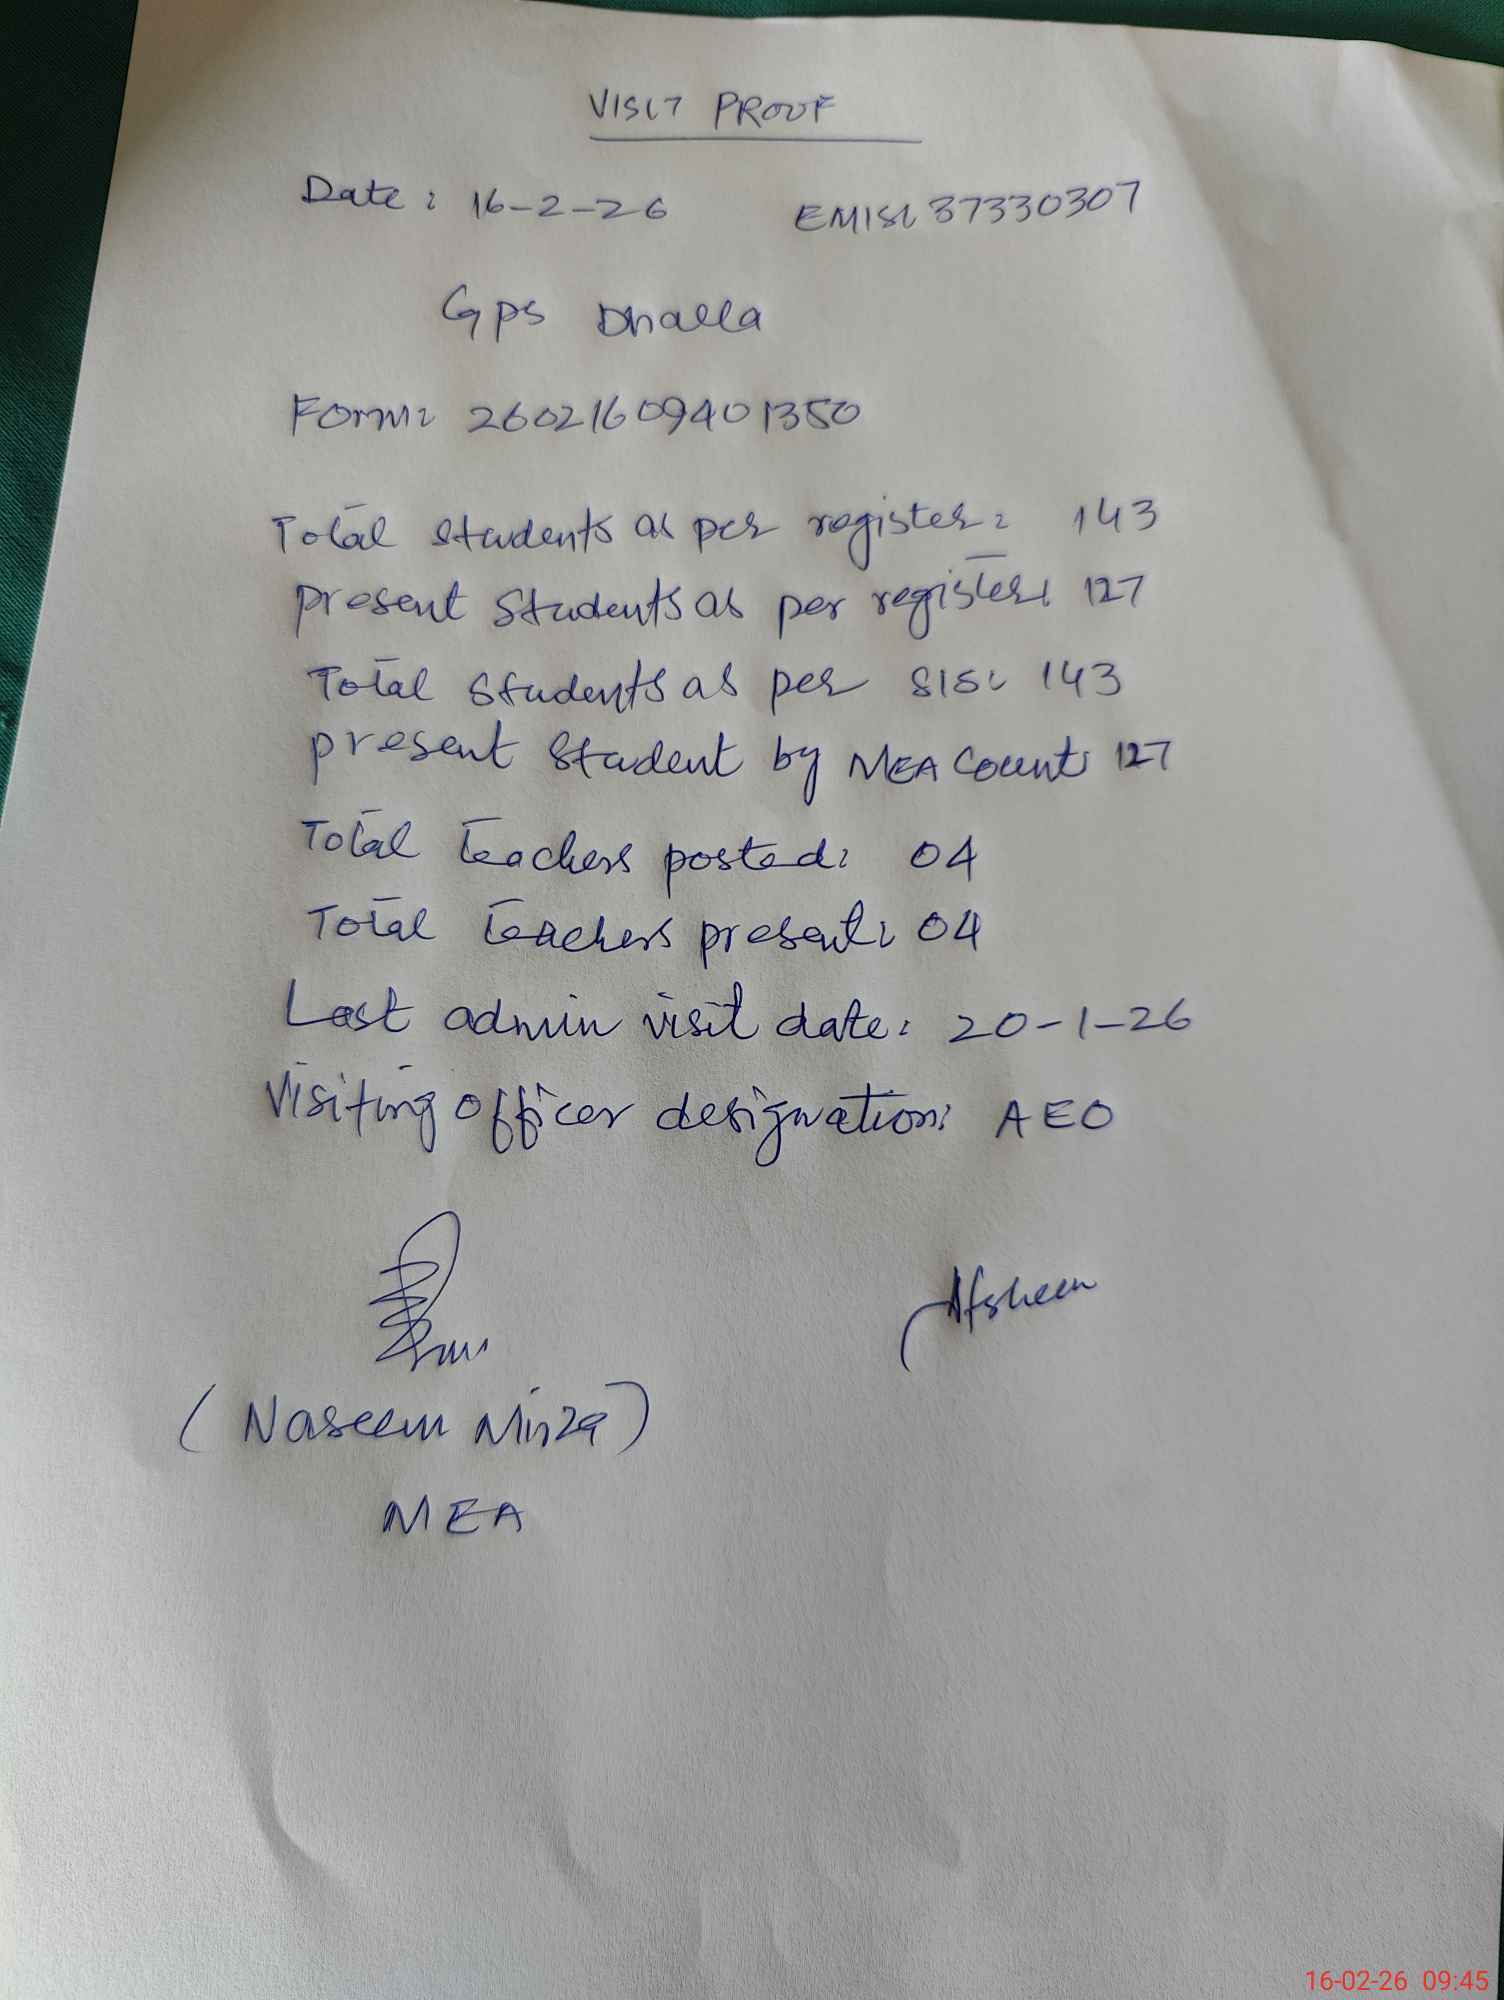 VISIT PROOF
Date: 16-2-26 EMIS: 37330307
Gps Dhalla
Form: 26021609401350
Total students as per register: 143
present students as per register: 127
Total students as per SIS: 143
present student by MEA Count: 127
Total teachers posted: 04
Total teachers present: 04
Last admin visit date: 20-1-26
Visiting officer designation: AEO
Afsheen
(Naseem Mirza)
MEA
16-02-26 09:45